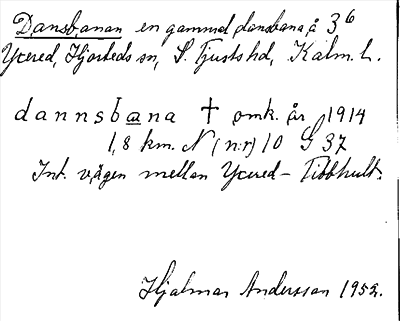 Dansbanan en gammal dansbana å 3⁶
Ycered, Hjorteds sn, S. Tjusts hd, Kalm. l.
dannsbana † omk. år 1914
1,8 km. N (n:r) 10 G 37
Int. vägen mellan Ycered – Tibbhult.
Hjalmar Andersson 1952.